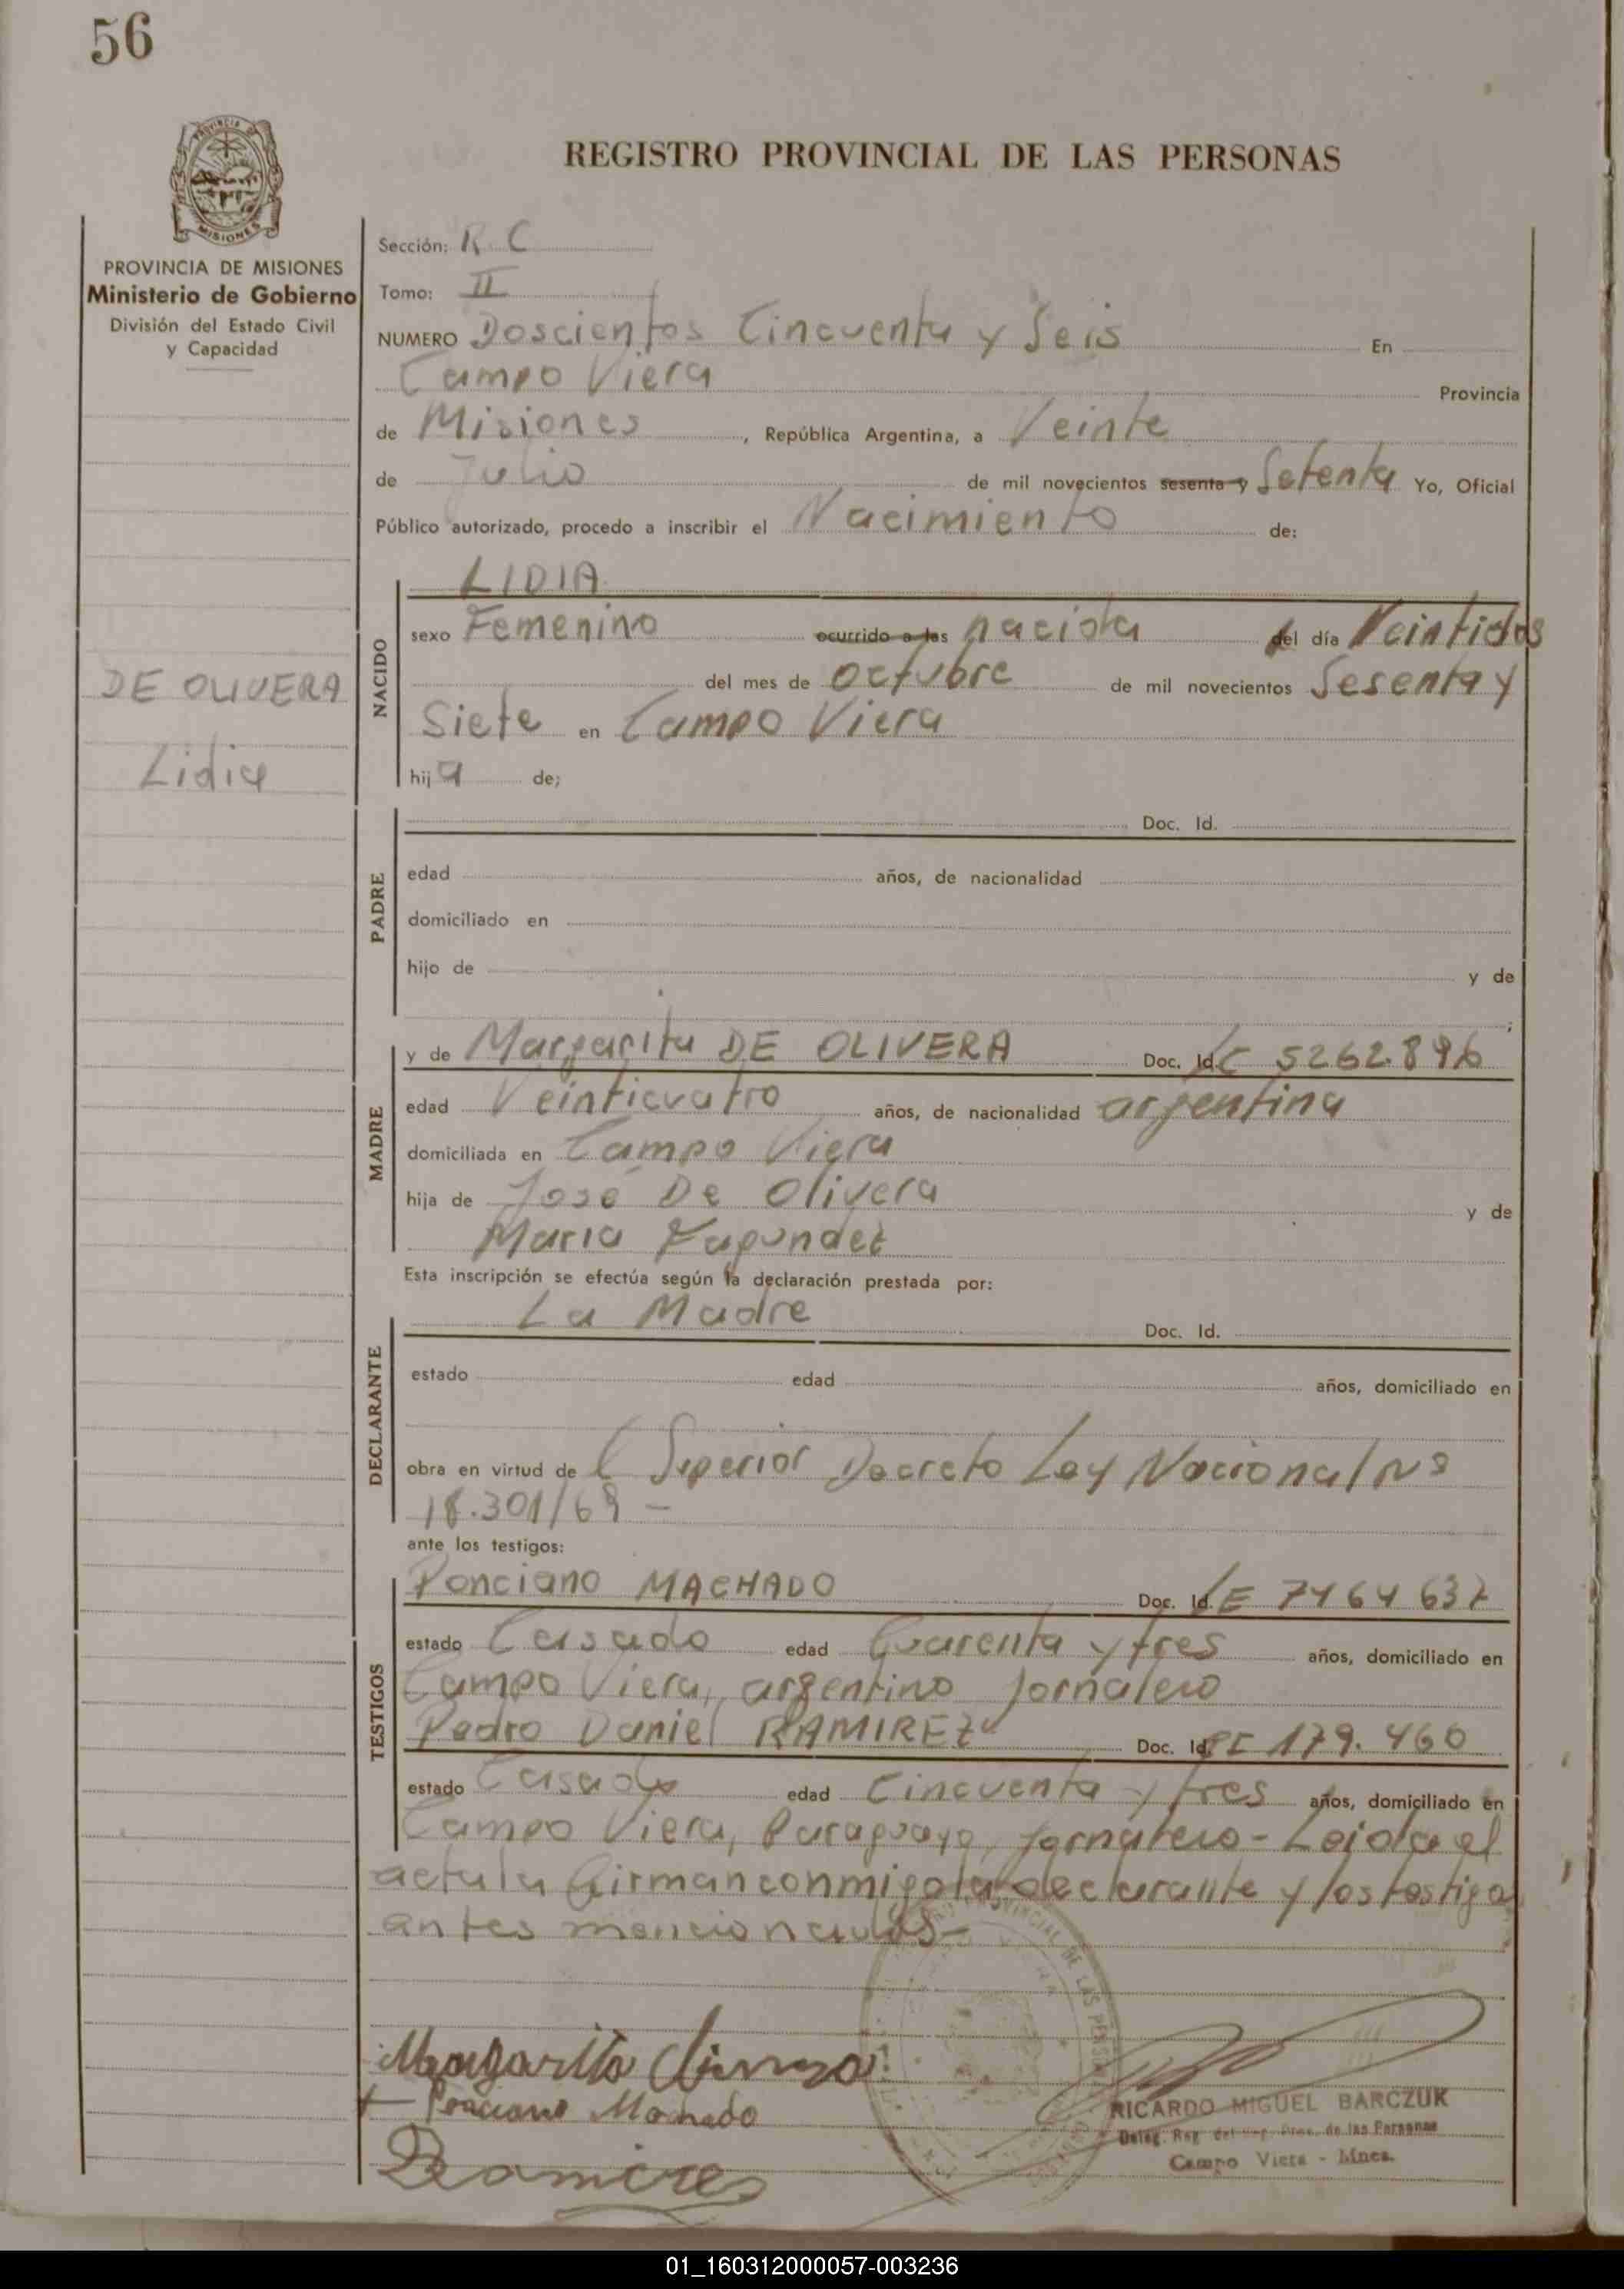 56
PROVINCIA DE MISIONES
REGISTRO PROVINCIAL DE LAS PERSONAS
PROVINCIA DE MISIONES
Ministerio de Gobierno
División del Estado Civil
y Capacidad
DE OLIVERA
Lidia
Sección: R C
Tomo: II
NUMERO Doscientos Cincuenta y Seis En
Campo Viera Provincia
de Misiones, República Argentina, a Veinte
de Julio de mil novecientos sesenta y Setenta Yo, Oficial
Público autorizado, procedo a inscribir el Nacimiento de:
NACIDO
LIDIA
sexo Femenino ocurrido a las nacida del día Veintidos
del mes de Octubre de mil novecientos Sesenta y
Siete en Campo Viera
hija de;
PADRE
Doc. Id.
edad años, de nacionalidad
domiciliado en
hijo de y de
;
MADRE
y de Margarita DE OLIVERA Doc. Id. LC 5262.896
edad Veinticuatro años, de nacionalidad argentina
domiciliada en Campo Viera
hija de José De Olivera y de
Maria Fagundez
Esta inscripción se efectúa según la declaración prestada por:
DECLARANTE
La Madre Doc. Id.
estado edad años, domiciliado en
obra en virtud de l Superior Decreto Ley Nacional Nº
18.301/69 -
ante los testigos:
TESTIGOS
Ponciano MACHADO Doc. Id. LE 7464637
estado Casado edad Cuarenta y tres años, domiciliado en
Campo Viera, argentino Jornalero
Pedro Daniel RAMIREZ Doc. Id. 179.460
estado Casado edad Cincuenta y tres años, domiciliado en
Campo Viera, Paraguayo, Jornalero - Leida el
acta la firman conmigo la declarante y los testigos
antes mencionados -
Margarita
Ponciano Machado
Ramires
RICARDO MIGUEL BARCZUK
Deleg. Reg. del Reg. Prov. de las Personas
Campo Viera - Mnes.
01_160312000057-003236